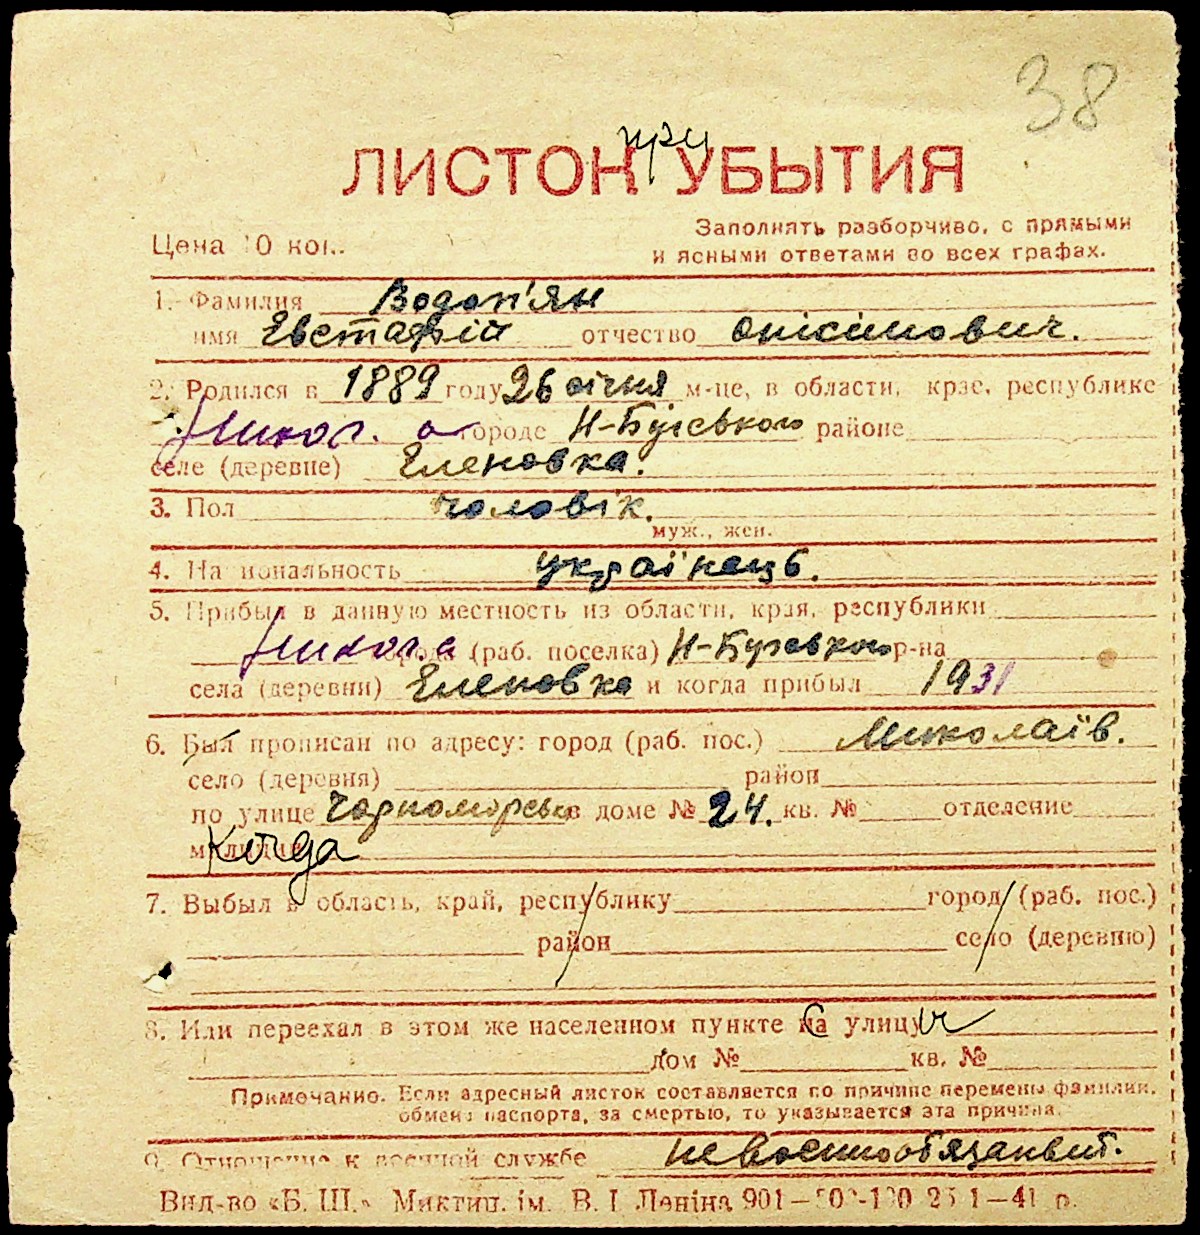 38
при
ЛИСТОК УБЫТИЯ
Цена 10 коп.
Заполнять разборчиво, с прямыми
и ясными ответами во всех графах.
1. Фамилия Водоп'ян
имя Евстафій отчество Онісімович.
2. Родился в 1889 году 26 січня м-це, в области, крае, республике
Никол. о городе Н-Бугского районе
селе (деревне) Еленовка.
3. Пол чоловік.
муж., жен.
4. Национальность українець.
5. Прибыл в данную местность из области, края, республики
Никол. о города (раб. поселка) Н-Бугского р-на
села (деревни) Еленовка и когда прибыл 1931
6. Был прописан по адресу: город (раб. пос.) Миколаїв.
село (деревня) район
по улице Чорноморська в доме № 24. кв. № отделение
милиции Когда
7. Выбыл в область, край, республику город (раб. пос.)
район село (деревню)
8. Или переехал в этом же населенном пункте на улицу
дом № кв. №
Примечание. Если адресный листок составляется по причине перемены фамилии,
обмена паспорта, за смертью, то указывается эта причина.
9. Отношение к военной службе невоеннообязанный.
Вид-во «Б. Ш.» Миктип. ім. В. І. Леніна 901—500-100 25 1—41 р.